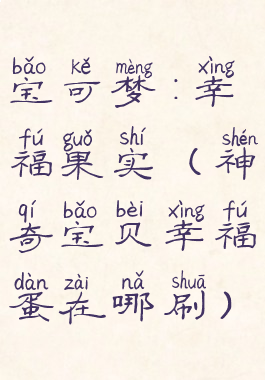 bǎo kě mèng xìng
宝可梦:幸
fú guǒ shí shén
福果实(神
qí bǎo bèi xìng fú
奇宝贝幸福
dàn zài nǎ shuā
蛋在哪刷)